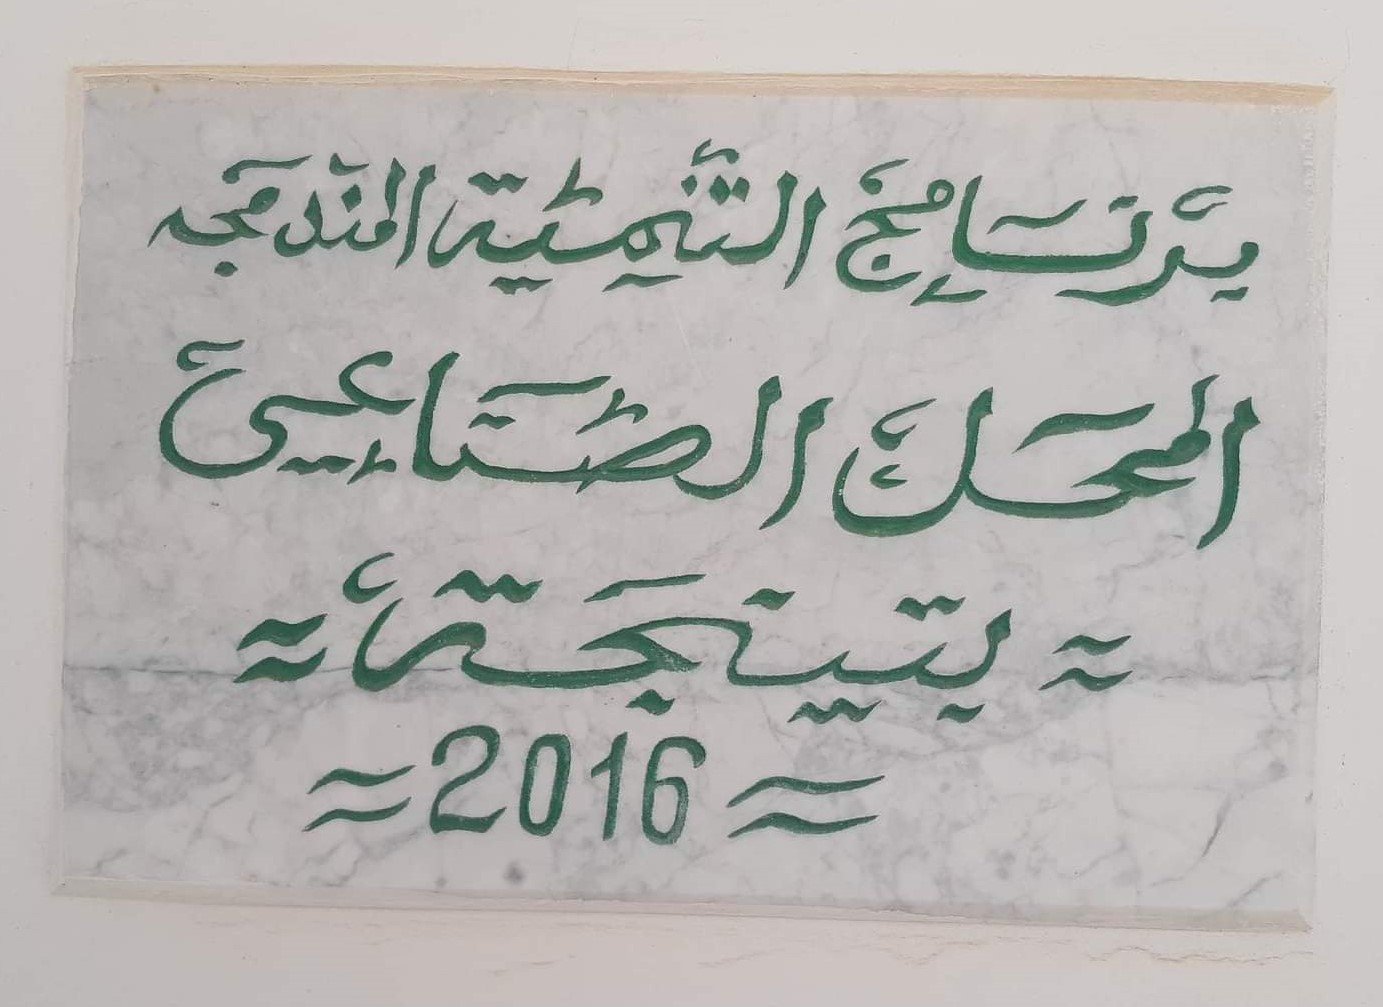 برنامج التنمية المندمجه
المحل الصناعي
بتينجة
2016